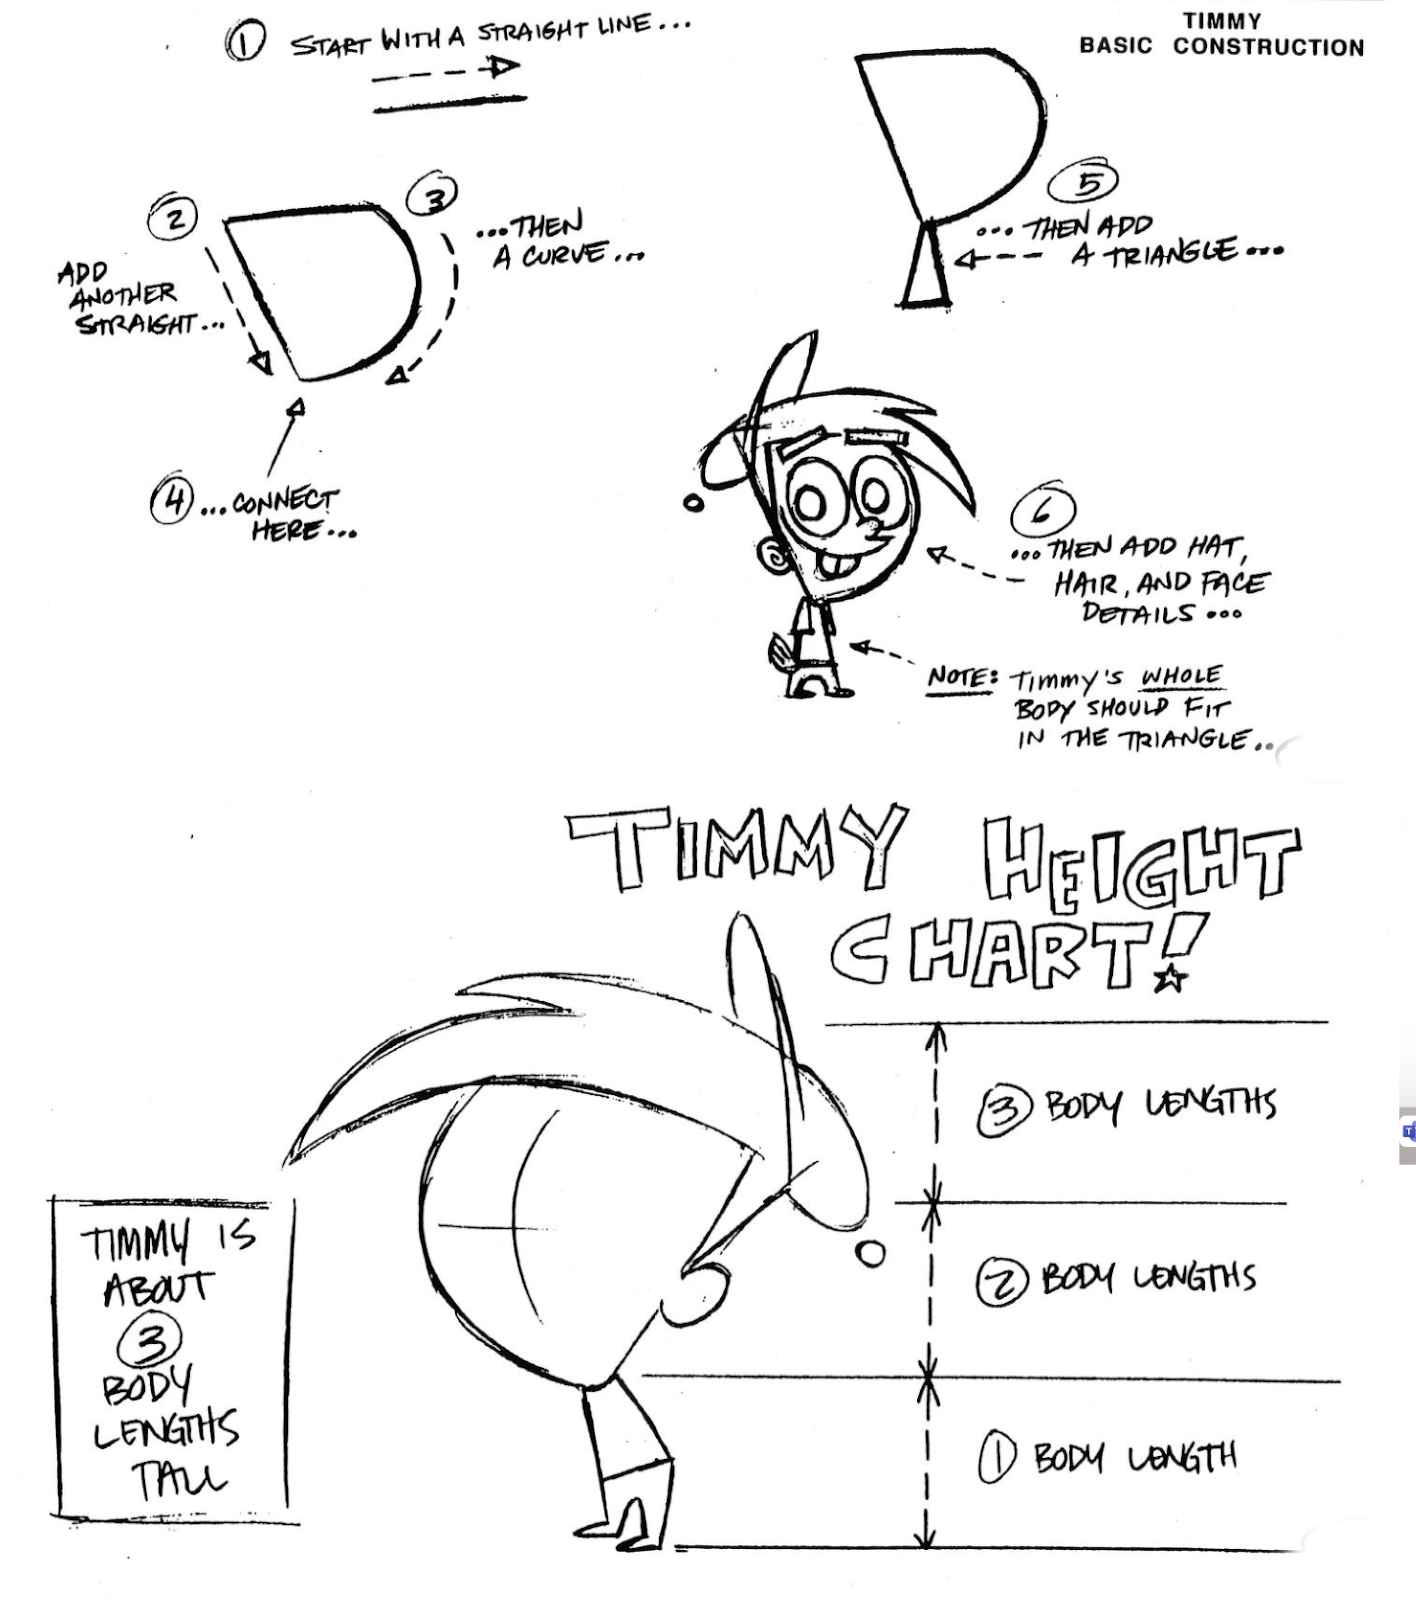 TIMMY
BASIC CONSTRUCTION
1 START WITH A STRAIGHT LINE...
2
ADD
ANOTHER
STRAIGHT...
3
...THEN
A CURVE...
4 ...CONNECT
HERE...
5
...THEN ADD
A TRIANGLE...
6
...THEN ADD HAT,
HAIR, AND FACE
DETAILS...
NOTE: TIMMY'S WHOLE
BODY SHOULD FIT
IN THE TRIANGLE...
TIMMY HEIGHT
CHART!
3 BODY LENGTHS
2 BODY LENGTHS
1 BODY LENGTH
TIMMY IS
ABOUT
3
BODY
LENGTHS
TALL
T